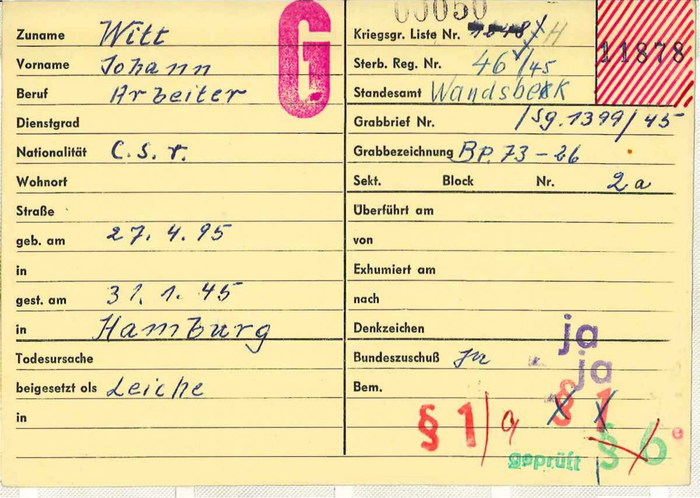 Zuname Witt
Vorname Johann
Beruf Arbeiter
Dienstgrad
Nationalität C.s.r.
Wohnort
Straße
geb. am 27.4.95
in
gest. am 31.1.45
in Hamburg
Todesursache
beigesetzt als Leiche
in
G
00050
Kriegsgr. Liste Nr. H
11878
Sterb. Reg. Nr. 46/45
Standesamt Wandsbek
Grabbrief Nr. /Sg.1399/45
Grabbezeichnung BP.73-26
Sekt. Block Nr. 2a
Überführt am
von
Exhumiert am
nach
Denkzeichen ja
Bundeszuschuß ja
ja
Bem.
§ 1/a § 1
geprüft § 6e